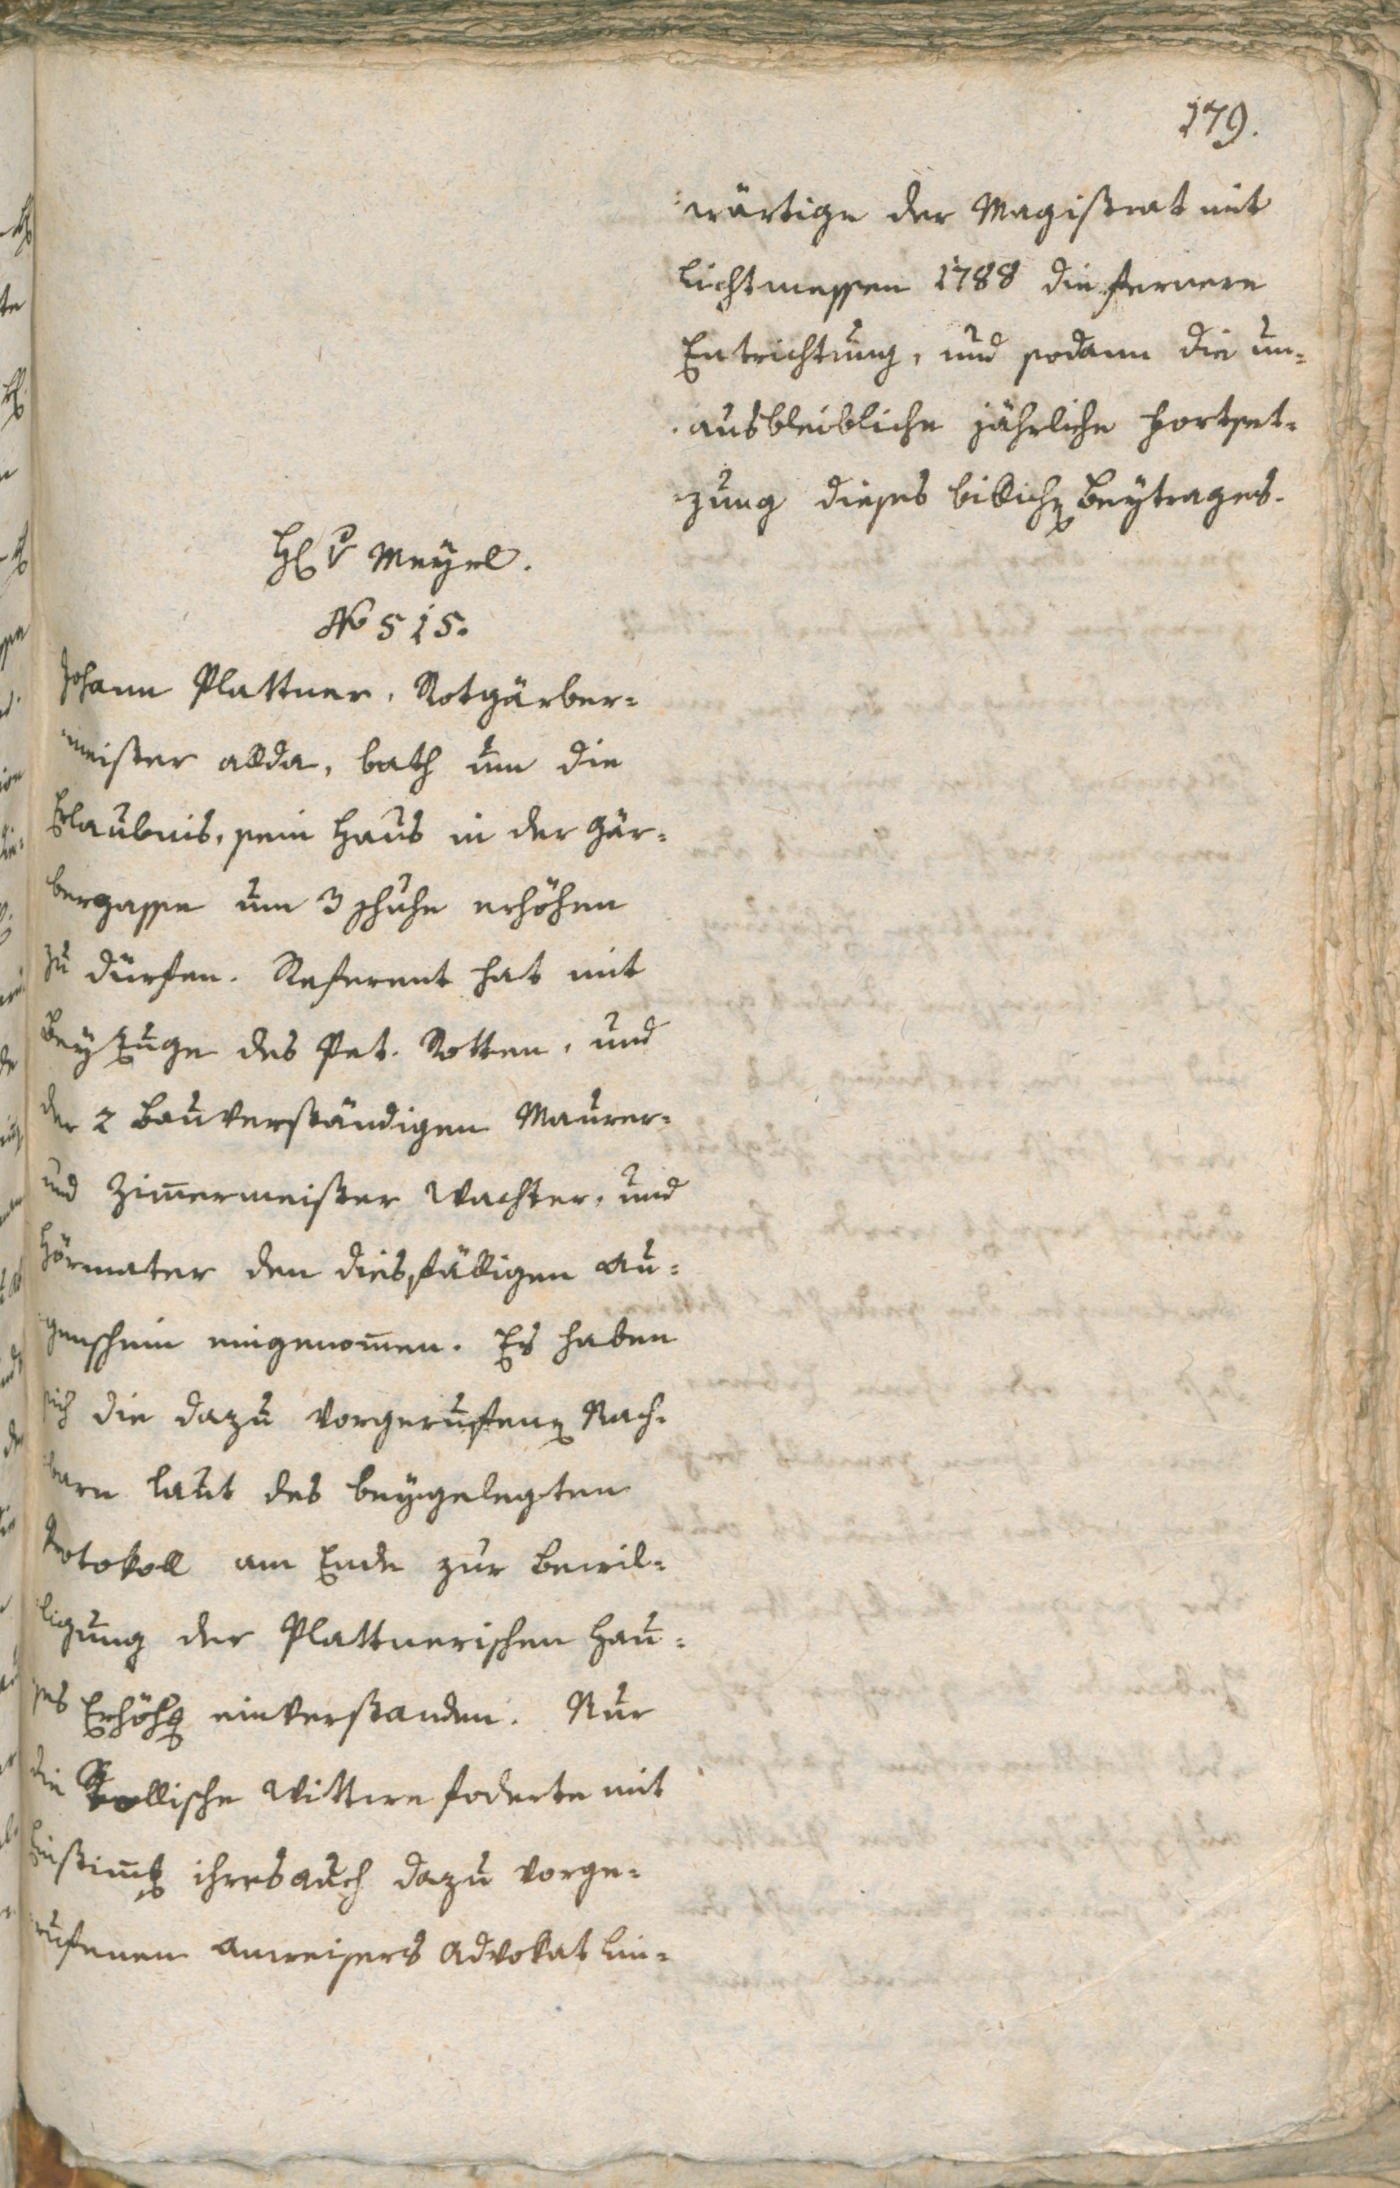 179.
wärtige der Magistrat mit
Lichtmessen 1788 die fernere
Entrichtung, und sodann die un¬
ausbleibliche jährliche Fortset¬
zung dieses billichen Beytrages.
H v Meyrl.
No 515.
Johann Plattner, Rotgärber¬
meister allda, bath um die
Erlaubnis, sein Haus in der Gär¬
bergasse um 3 Schuhe erhöhen
zu dürfen. Referent hat mit
Beyzuge des Pet. Rotten, und
der 2 Bauverständigen Maurer¬
und Zimmermeister Wachter, und
Hörmater den diesfälligen Au¬
genschein eingenommen. Es haben
sich die dazu vorgerufenen Nach¬
barn laut des beygelegten
Protokoll am Ende zur Bewil¬
ligung der Plattnerischen Hau¬
ses Erhöhg einverstanden. Nur
die Wittwe foderte mit
Einstimg ihres auch dazu vorge¬
rufenen Anweisers Advokat Lin¬